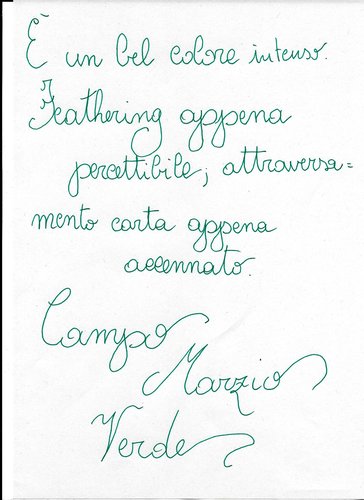 È un bel colore intenso.
Feathering appena
percettibile; attraversa=
mento carta appena
accennato.
Campo
Marzio
Verde